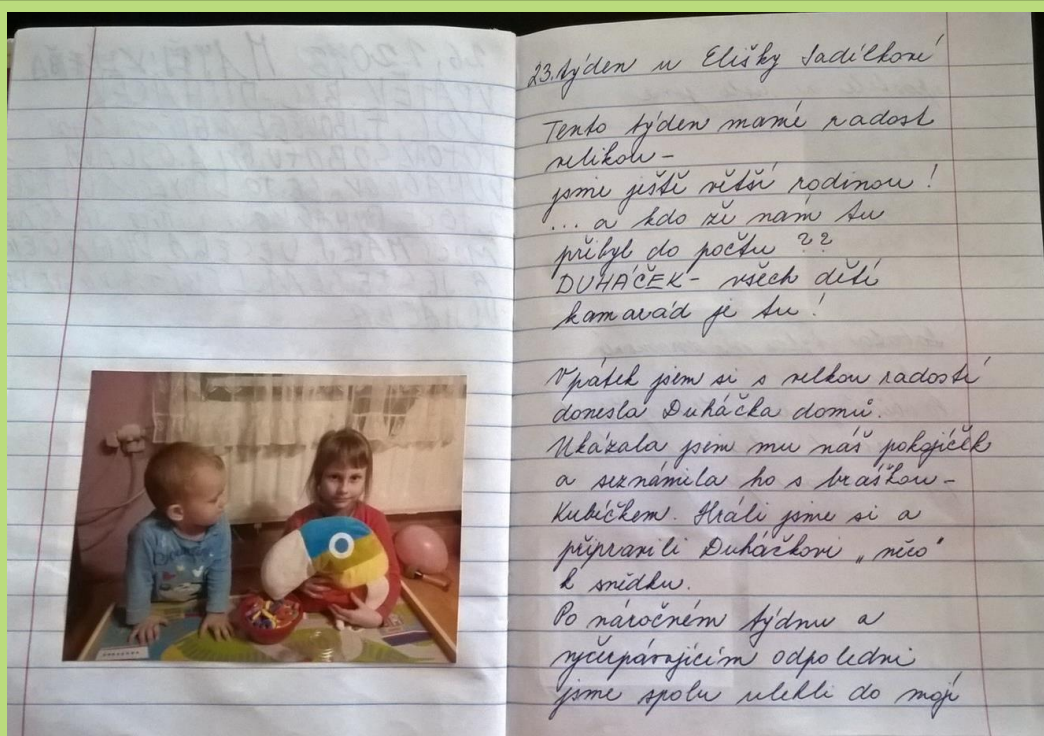 23. týden u Elišky Sadílkové
Tento týden mámě radost
velikou -
jsme ještě větší rodinou !
... a kdo že nám tu
přibyl do počtu ??
DUHÁČEK - všech dětí
kamarád je tu !
V pátek jsem si s velkou radostí
donesla Duháčka domů.
Ukázala jsem mu náš pokojíček
a seznámila ho s bráškou -
Kubíčkem. Hráli jsme si a
připravili Duháčkovi „něco"
k snědku.
Po náročném týdnu a
vyčerpávajícím odpoledni
jsme spolu ulehli do mojí